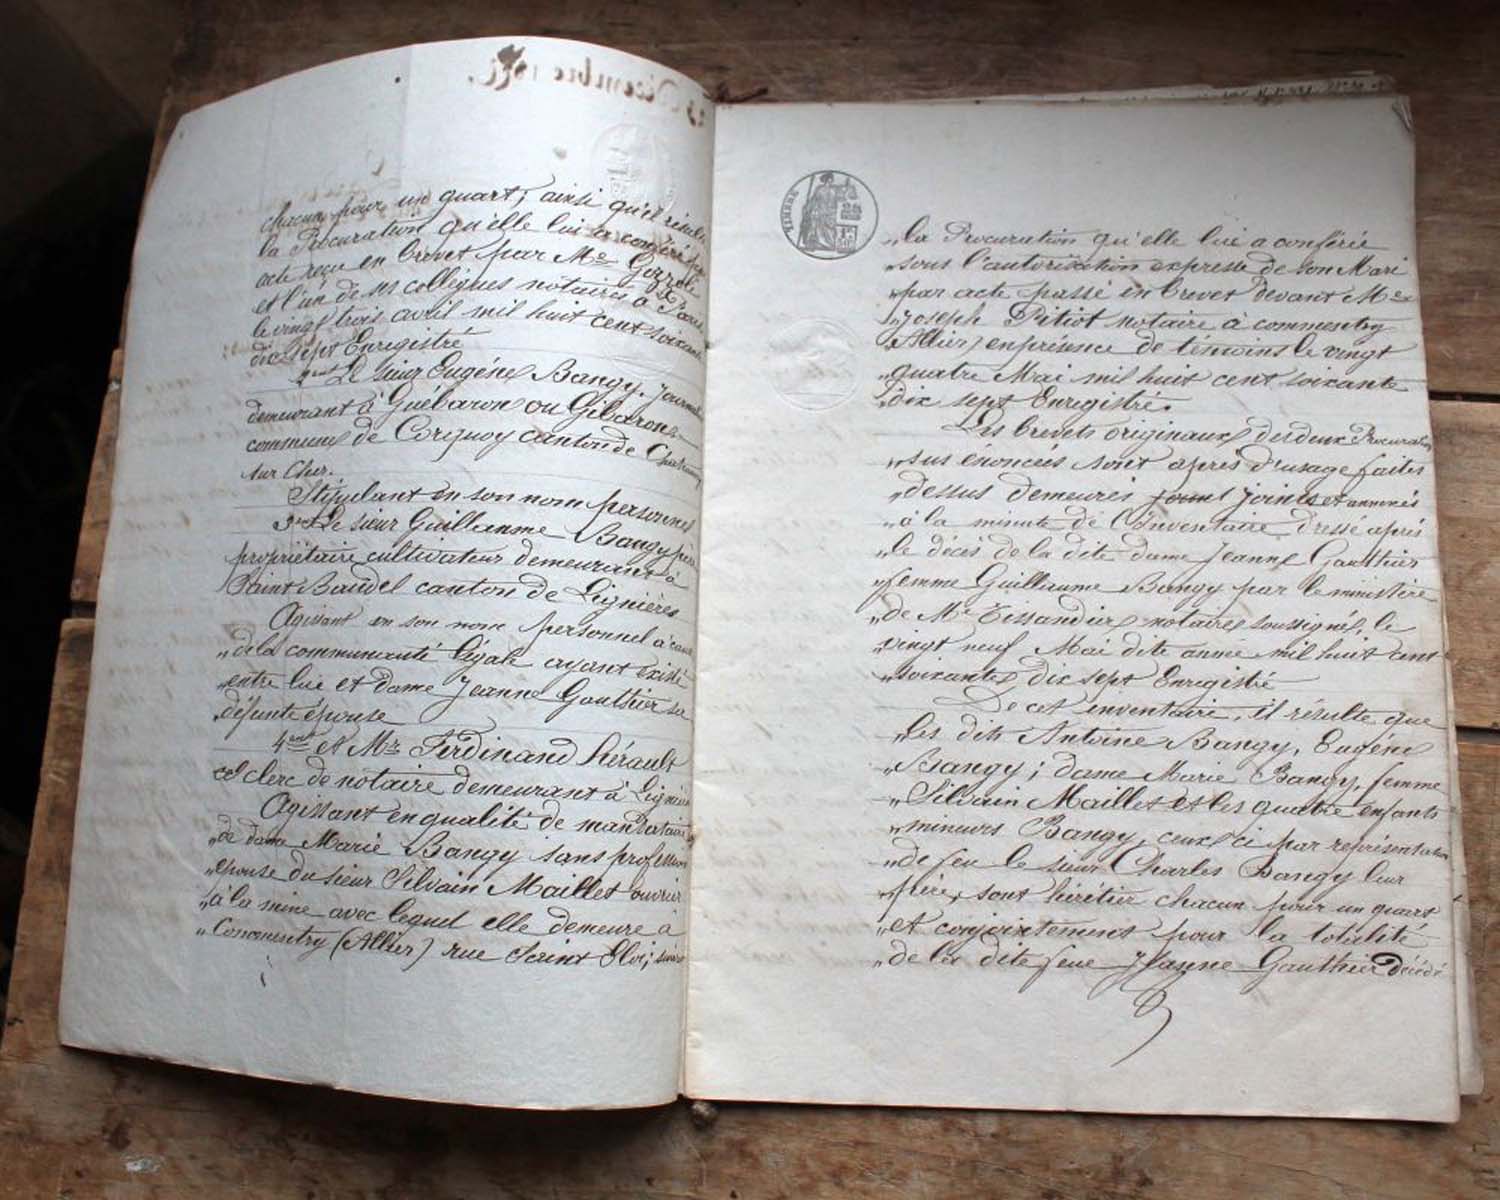 chacun pour un quart, ainsi qu'il résulte
la Procuration qu'elle lui a conféré par
acte reçu en brevet par Me
et l'un de ses collègues notaires à Paris
le vingt trois avril mil huit cent soixante
dix sept Enregistré
2ent Le sieur Eugène Bangy, Journalier
demeurant à Guébaron ou Gibaron
commune de Corquoy canton de
sur Cher.
Stipulant en son nom personnel
3ent Le sieur Guillaume Bangy père
propriétaire cultivateur demeurant à
Saint Baudel canton de Lignières
Agissant en son nom personnel à cause
„ de la communauté légale ayant existé
„ entre lui et dame Jeanne Gauthier sa
„ défunte épouse
4ent et Mr Ferdinand hérault
clerc de notaire demeurant à Lignières
Agissant en qualité de mandataire
„ de dame Marie Bangy sans profession
„ épouse du sieur Silvain Maillet ouvrier
„ à la mine avec lequel elle demeure à
„ Commentry (Allier) rue Saint Eloi;
TIMBRE
„ la Procuration qu'elle lui a conférée
„ sous l'autorisation expresse de son Mari
„ par acte passé en brevet devant Me
„ Joseph Pitiot notaire à commentry
(Allier) en présence de témoins le vingt
„ quatre Mai mil huit cent soixante
„ dix sept Enregistré.
Les brevets originaux des deux Procurations
„ sus enoncées sont après d'usage faites
„ dessus demeurés joint Joints et annexés
„ à la minute de l'inventaire dressé après
„ le décès de la dite dame Jeanne Gauthier
„ femme Guillaume Bangy par le ministère
„ de Me Tissandier notaire soussigné, le
„ vingt neuf Mai dite année mil huit cent
„ soixante dix sept Enregistré
De cet inventaire, il résulte que
„ les dits Antoine Bangy, Eugène
„ Bangy; dame Marie Bangy, femme
„ Silvain Maillet et les quatre enfants
„ mineurs Bangy, ceux ci par représentation
„ de feu le sieur Charles Bangy leur
„ père, sont héritier chacun pour un quart
„ et conjointement pour la totalité
„ de la dite feue Jeanne Gauthier décédé